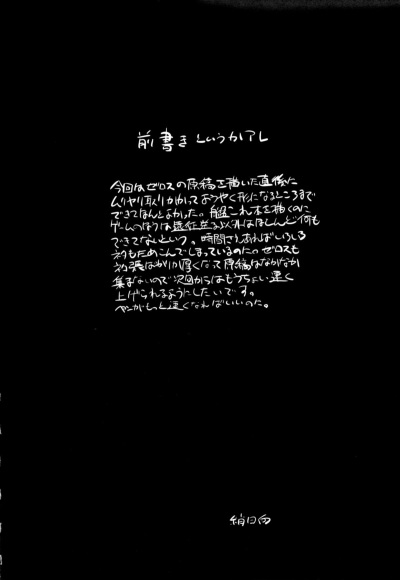 前書きというかアレ
今回はゼロスの原稿を描いた直後に
ムリヤリ取りかかってようやく形になるところまで
できてなんとかよかった。艦これ本を描くのに
ゲームのほうは遠征並み以外はほとんど何も
できてないという。時間さえあればいろいろ
ネタもためこんでしまっているのだ。ゼロスも
なって原稿はなかなか
集まないので次回からはもうちょい速く
上げられるようにしたいです。
もっと速くなればいいのだ。
絹日向